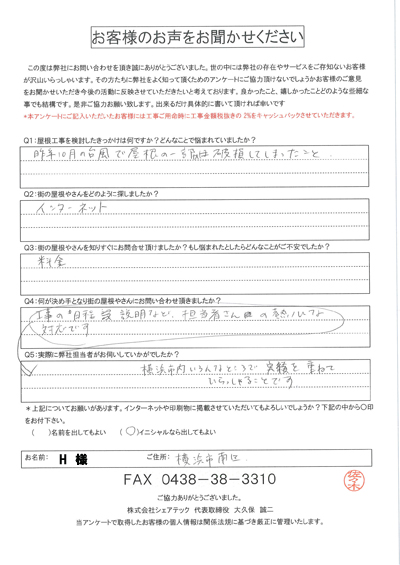 お客様のお声をお聞かせください
この度は弊社にお問い合わせを頂き誠にありがとうございました。世の中には弊社の存在やサービスをご存知ないお客様
が沢山いらっしゃいます。その方たちに弊社をよく知って頂くためのアンケートにご協力頂けないでしょうかお客様のご意見
をお聞かせいただき今後の活動に反映させていただきたいと考えております。良かったこと、嬉しかったことどのような些細な
事でも結構です。是非ご協力お願い致します。出来るだけ具体的に書いて頂ければ幸いです
*本アンケートにご記入いただいたお客様には工事ご用命時に工事金額税抜きの 2%をキャッシュバックさせていただきます。
Q1:屋根工事を検討したきっかけは何ですか?どんなことで悩まれていましたか?
昨年10月の台風で屋根の一部は破損してしまったこと
Q2:街の屋根やさんをどのように探しましたか?
インターネット
Q3:街の屋根やさんを知りすぐにお問合せ頂けましたか?もし悩まれたとしたらどんなことがご不安でしたか?
料金
Q4:何が決め手となり街の屋根やさんにお問い合わせ頂きましたか?
工事の 説明など、担当者さんの熱心な
対応です
Q5:実際に弊社担当者がお伺いしていかがでしたか?
横浜市内いろんなところで実績を重ねて
いらっしゃることです
*上記についてお願いがあります。インターネットや印刷物に掲載させていただいてもよろしいでしょうか?下記の中から〇印
をお付下さい。
( )名前を出してもよい ( 〇 )イニシャルなら出してもよい
お名前: H 様 ご住所: 横浜市南区
FAX 0438-38-3310
ご協力ありがとうございました。
株式会社シェアテック 代表取締役 大久保 誠二
当アンケートで取得したお客様の個人情報は関係法規に基づき厳正に管理いたします。
佐々木